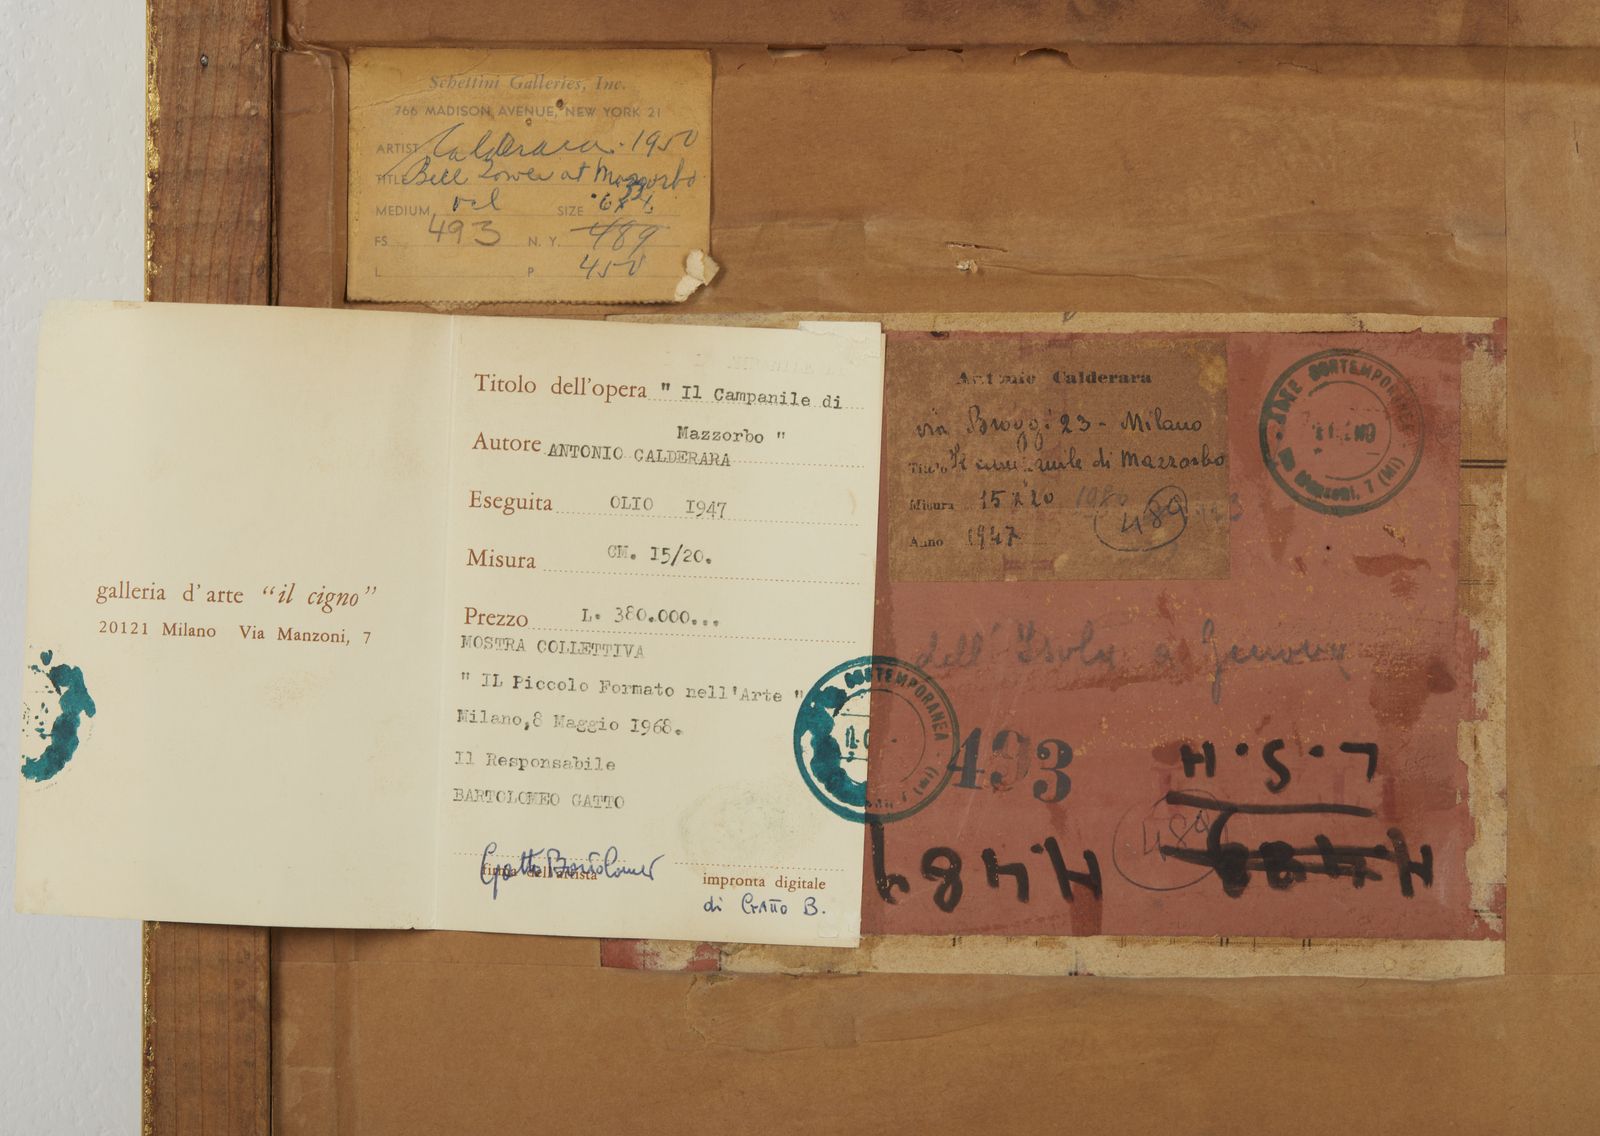 Schettini Galleries, Inc.
766 MADISON AVENUE, NEW YORK 21
ARTIST Calderara. 1950
TITLE Bell Tower at Mazzorbo
MEDIUM oil SIZE
FS 493 N. Y. 489
L P 450
galleria d'arte "il cigno"
20121 Milano Via Manzoni, 7
Titolo dell'opera " Il Campanile di
Mazzorbo "
Autore ANTONIO CALDERARA
Eseguita OLIO 1947
Misura CM. 15/20.
Prezzo L. 380.000...
MOSTRA COLLETTIVA
" IL Piccolo Formato nell'Arte "
Milano,8 Maggio 1968.
Il Responsabile
BARTOLOMEO GATTO
Gatto Bartolomeo
firma dell'artista
impronta digitale
di Gatto B.
Antonio Calderara
via Broggi 23 - Milano
Titolo Il campanile di Mazzorbo
Misura 15 x 20
489
Anno 1947
ARTE CONTEMPORANEA
via Manzoni, 7 (MI)
dell'Isola a Genova
CONTEMPORANEA
7 (MI)
493
L.S.H
489
H.489
H.489